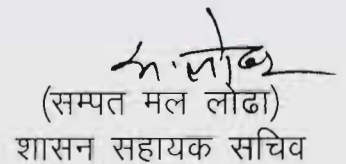 (सम्पत मल लोढा)
शासन सहायक सचिव